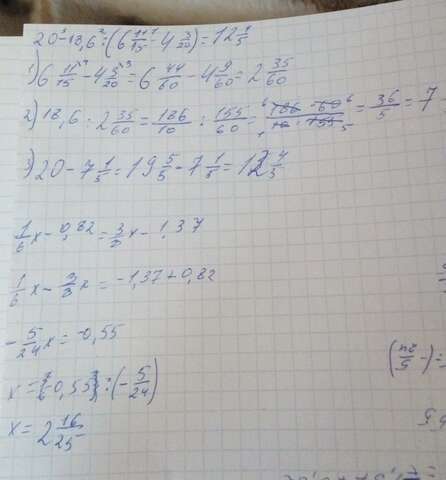 20-18,6:(6 11/15-4 3/20)=12 4/5
1) 6 11/15-4 3/20=6 44/60-4 9/60=2 35/60
2) 18,6:2 35/60=186/10:155/60=186·60/10·155=36/5=7
3) 20-7 1/5=19 5/5-7 1/5=12 4/5
1/6x-0,82=3/8x-1,37
1/6x-3/8x=-1,37+0,82
-5/24x=-0,55
x=(-0,55):(-5/24)
=(-5/24)
x=2 16/25